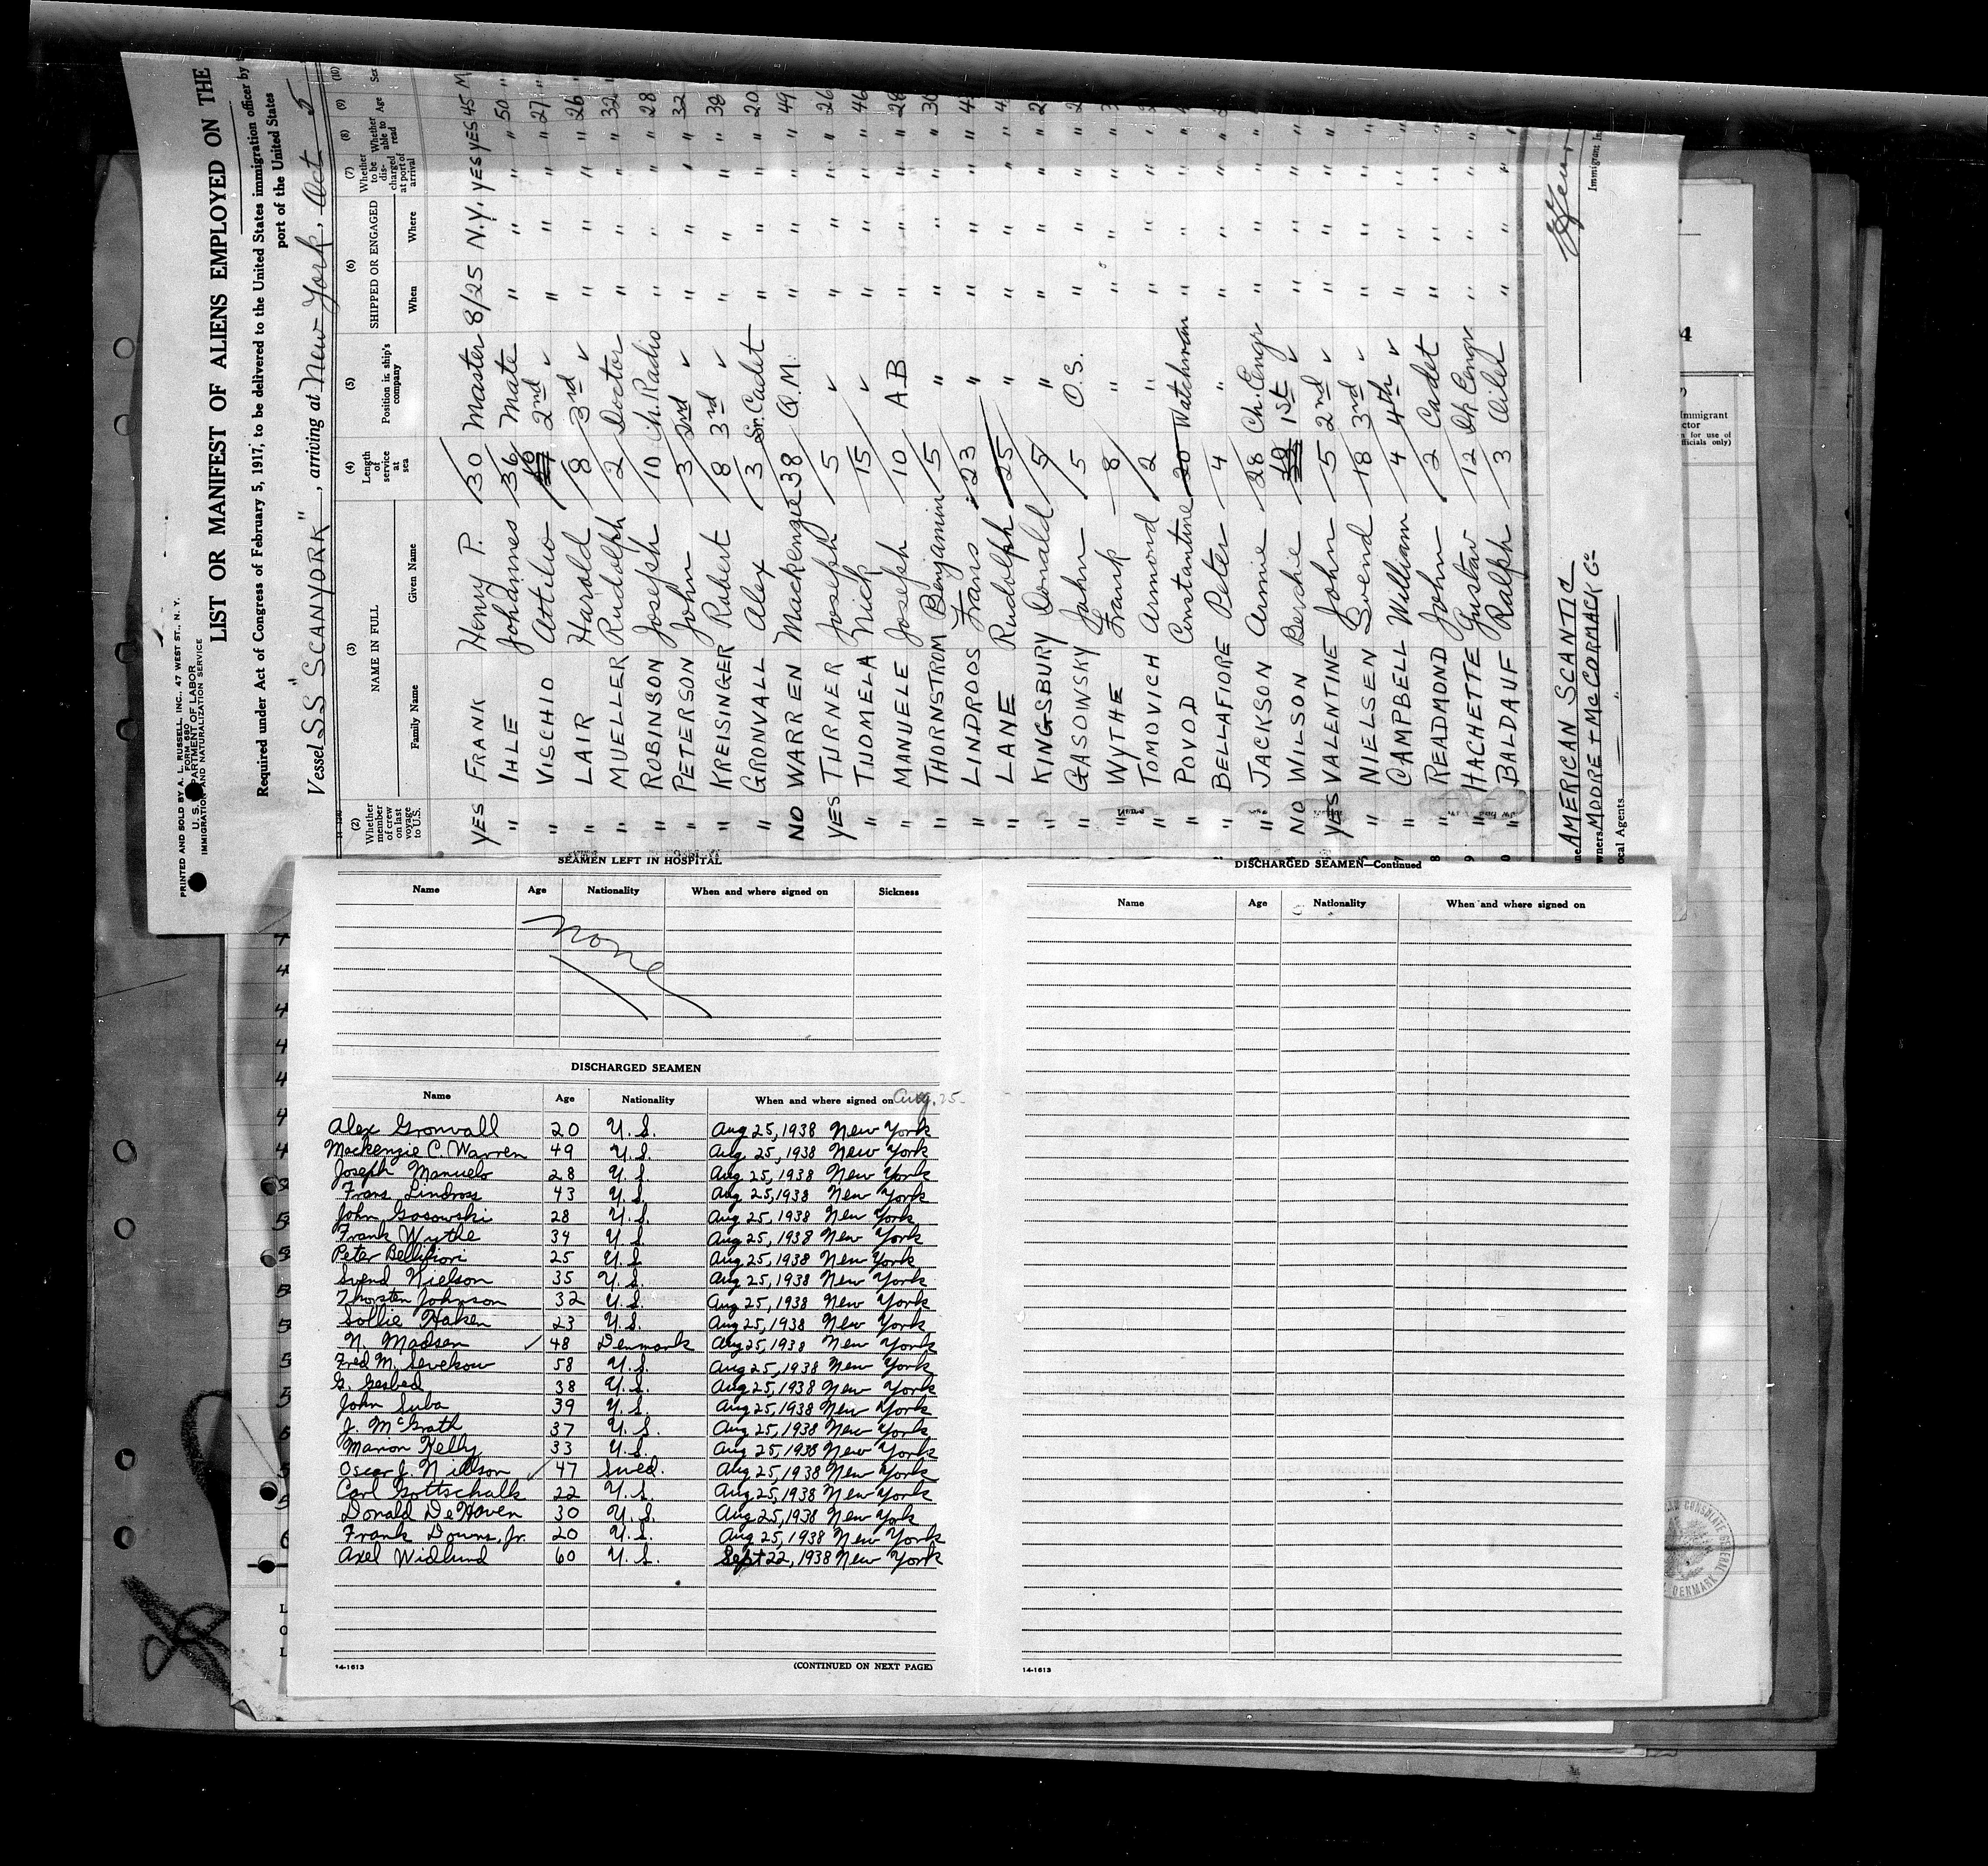 PRINTED AND SOLD BY A. L. RUSSELL, INC., 47 WEST ST., N. Y.
FORM 680
U. S. DEPARTMENT OF LABOR
IMMIGRATION AND NATURALIZATION SERVICE
LIST OR MANIFEST OF ALIENS EMPLOYED ON THE
Required under Act of Congress of February 5, 1917, to be delivered to the United States immigration officer by
port of the United States
Vessel SS "SCANYORK", arriving at New York, Oct 5
(2) (3) (4) (5) (6) (7) (8) (9) (10)
Whether member of crew on last voyage to U.S. NAME IN FULL Family Name Given Name Length of service at sea Position in ship's company SHIPPED OR ENGAGED When Where Whether to be discharged at port of arrival Whether able to read Age Sex
YES FRANK Henry P. 30 Master 8/25 N.Y. YES YES 45 M
" IHLE Johannes 36 Mate " " " " 50 "
" VISCHIO Attilio 2nd " " " " 27 "
" LAIR Harold 8 3rd " " " " 26 "
" MUELLER Rudolph 2 Doctor " " " " 32
" ROBINSON Joseph 10 Ch. Radio " " " " 28
" PETERSON John 3 2nd " " " " 32
" KREISINGER Robert 8 3rd " " " " 38
" GRONVALL Alex 3 Sr. Cadet " " " " 20
NO WARREN Mackenzie 38 Q.M. " " " " 49
YES TURNER Joseph 5 " " " " 26
" TUOMELA Nick 15 " " " " 46
" MANUELE Joseph 10 A.B " " " " 28
" THORNSTROM Benjamin 5 " " " " "
" LINDROOS Frans 23 " " " " "
" LANE Rudolph 25 " " " " "
" KINGSBURY Donald 5 " " " " "
" GASOWSKY John 5 O.S. " " " "
" WYTHE Frank 8 " " " " "
" TOMOVICH Armond 2 " " " " "
" POVOD Constantine 20 Watchman " " " "
" BELLAFIORE Peter 4 " " " " "
" JACKSON Arnie 28 Ch. Engr " " " "
NO WILSON Berchie 1st " " " "
YES VALENTINE John 5 2nd " " " "
" NIELSEN Svend 18 3rd " " " "
" CAMPBELL William 4 4th " " " "
" READMOND John 2 Cadet " " " "
" HACHETTE Gustav 12 Dk Engr " " " "
" BALDAUF Ralph 3 Oiler " " " "
AMERICAN SCANTIC
wners MOORE + McCORMACK Co
ocal Agents " "
Immigrant In
SEAMEN LEFT IN HOSPITAL
Name Age Nationality When and where signed on Sickness
None
DISCHARGED SEAMEN
Name Age Nationality When and where signed on Aug. 25
Alex Gronvall 20 U. S. Aug 25, 1938 New York
Mackenzie C. Warren 49 U. S. Aug. 25, 1938 New York
Joseph Manuelo 28 U. S. Aug 25, 1938 New York
Frans Lindross 43 U. S. Aug 25, 1938 New York
John Gosowski 28 U. S. Aug 25, 1938 New York
Frank Wythe 34 U. S. Aug 25, 1938 New York
Peter Bellifiori 25 U. S. Aug 25, 1938 New York
Svend Nielson 35 U. S. Aug 25, 1938 New York
Thorsten Johnson 32 U. S. Aug 25, 1938 New York
Sollie Haken 23 U. S. Aug 25, 1938 New York
N. Madsen 48 Denmark Aug 25, 1938 New York
Fred M. Sevekow 58 U. S. Aug 25, 1938 New York
G. Gesbed 38 U. S. Aug 25, 1938 New York
John Suba 39 U. S. Aug 25, 1938 New York
J. McGrath 37 U. S. Aug 25, 1938 New York
Marion Kelly 33 U. S. Aug 25, 1938 New York
Oscar J. Nillson 47 Swed. Aug 25, 1938 New York
Carl Gottschalk 22 U. S. Aug 25, 1938 New York
Donald DeHaven 30 U. S. Aug 25, 1938 New York
Frank Downs, Jr. 20 U. S. Aug 25, 1938 New York
Axel Widlund 60 U. S. Sept 22, 1938 New York
14-1613 (CONTINUED ON NEXT PAGE)
DISCHARGED SEAMEN—Continued
Name Age Nationality When and where signed on
14-1613
4
mmigrant
ctor
n for use of
fficials only)
CONSULATE GENERAL
DENMARK